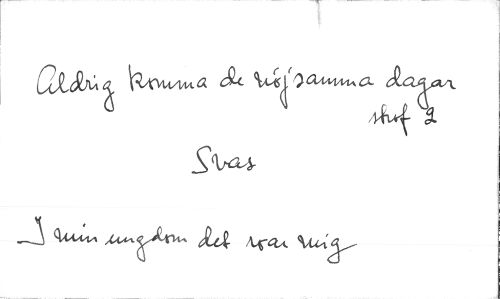 Aldrig komma de nöjsamma dagar
strof 2
Svas
I min ungdom det var mig